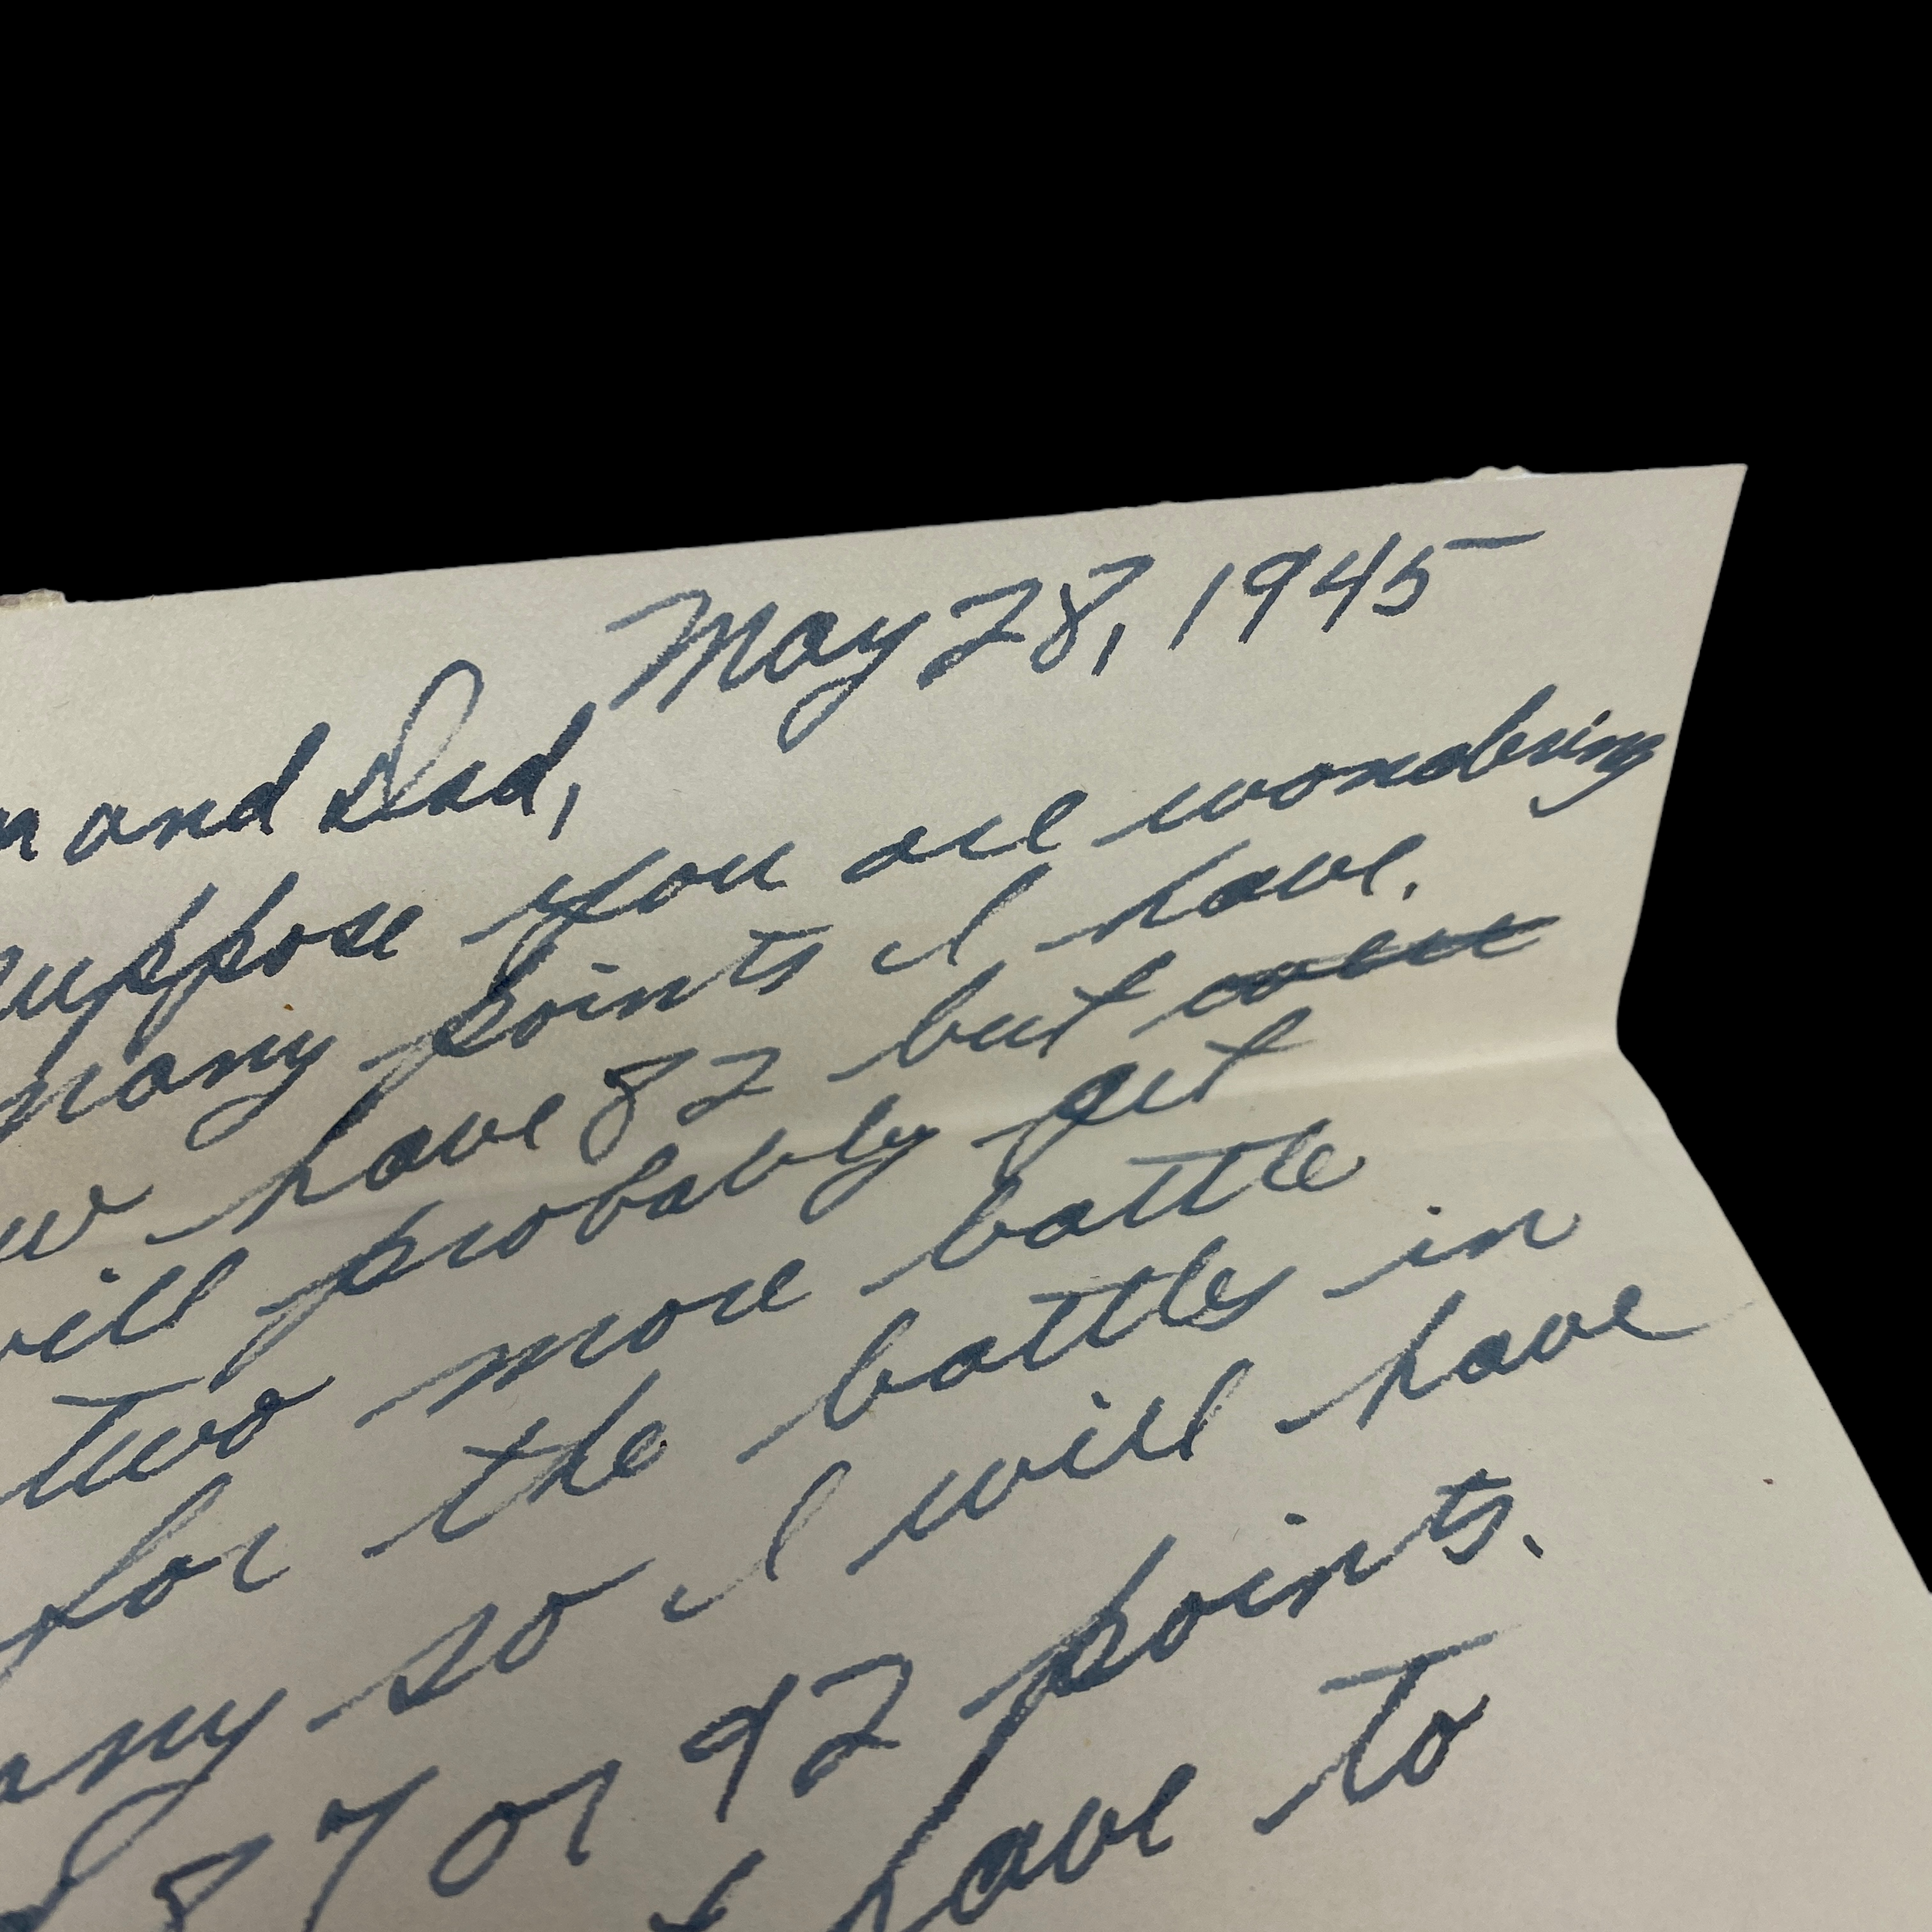 May 28, 1945
and Dad,
suppose you are wondering
many points I have.
have 82 but
will probably get
two more battle
for the battles in
so I will have
87 or 92 points.
have to